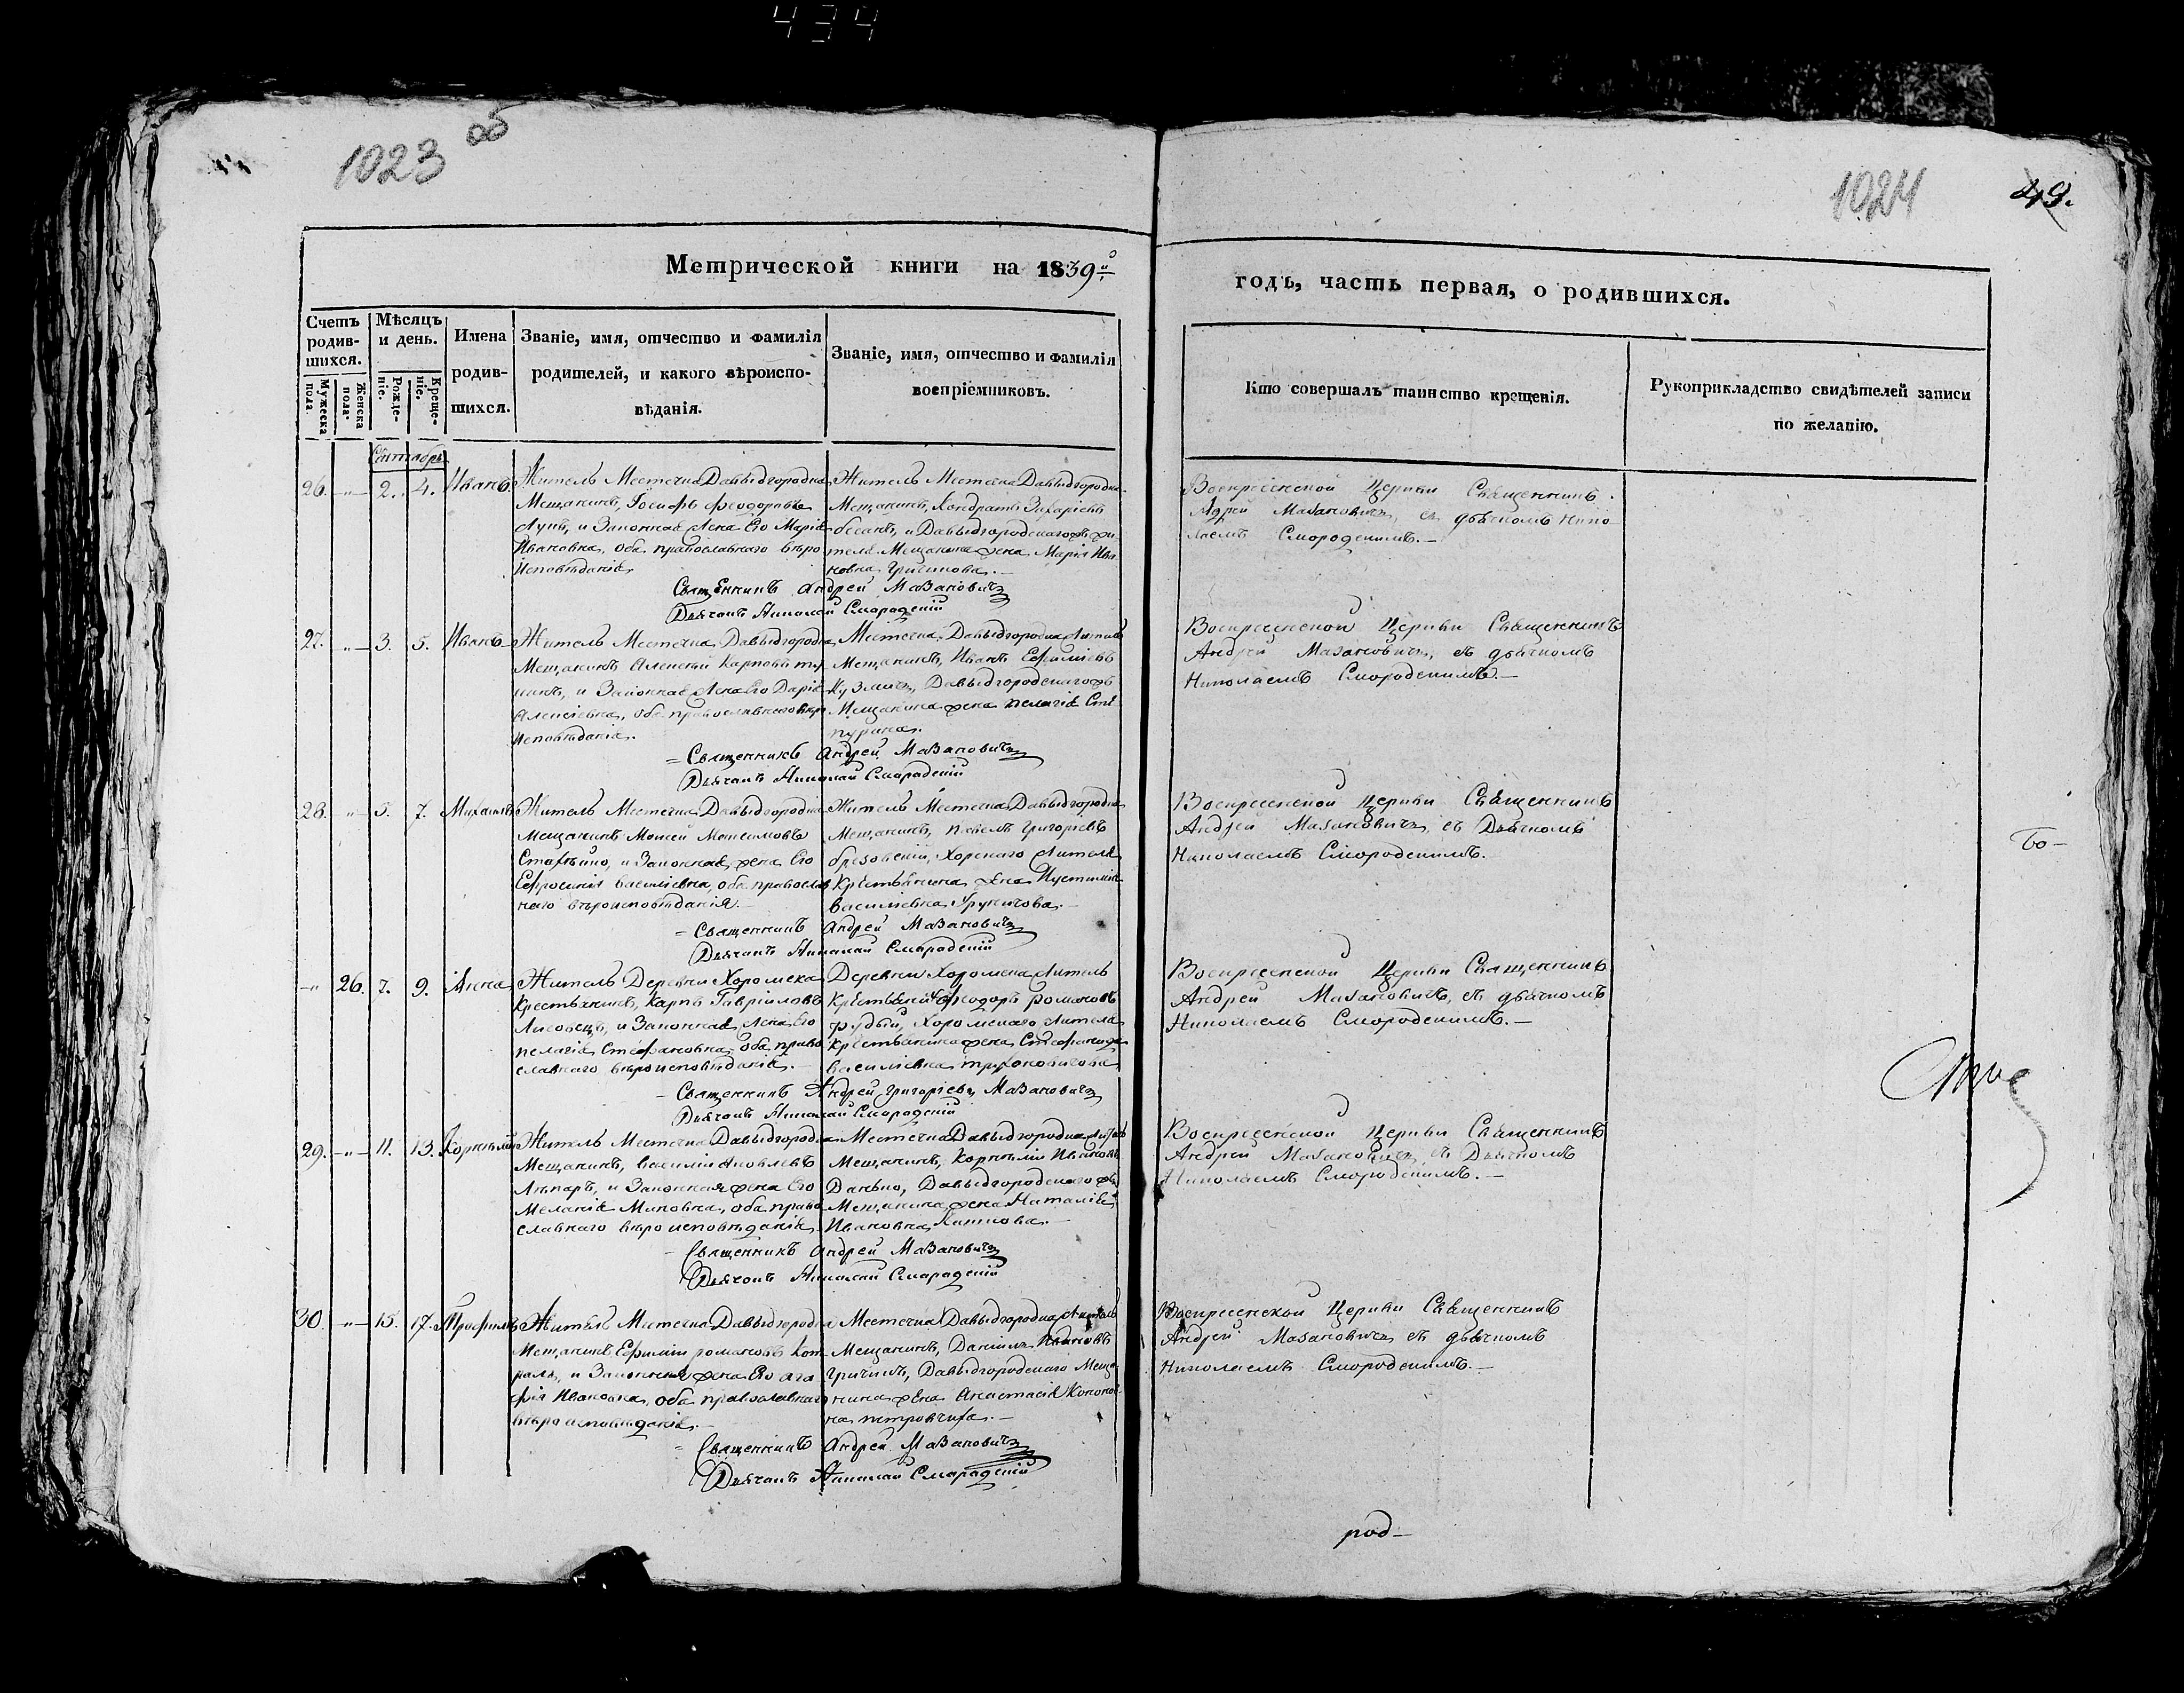 434
1023 об
1024
49.
Метрической книги на 1839й
годъ, часть первая, о родившихся.
Счетъ родившихся.
Мужеска пола.
Женска пола.
Мѣсяцъ и день.
Рожденіе.
Крещеніе.
Имена родившихся.
Званіе, имя, отчество и фамилія родителей, и какого вѣроисповѣданія.
Званіе, имя, отчество и фамилія воспріемниковъ.
Кто совершалъ таинство крещенія.
Рукоприкладство свидѣтелей записи по желанію.
Сентябрь
26. -"- 2. 4. Иванъ
Житель Местечка Давыдгородка
Мещанинъ, Іосифъ Феодоровъ
и Законная Жена Его Марія
Ивановна, оба православнаго вѣро
Исповѣданія.
Житель Местечка Давыдгородка
Мещанинъ, Кондратъ Захаріевъ
и Давыдгородскаго жи
теля Мещанина жена Марія Ива
новна Гричикова.
Воскресенской Церкви Священникъ
Адрей Мазановичъ, съ дьячкомъ Нико
лаемъ Смородскимъ.
Священникъ Андрей Мазановичъ
Дьячокъ Николай Смарадскій
27. -"- 3. 5. Иванъ
Житель Местечка Давыдгородка
Мещанинъ Алексей Карповъ
и Законная Жена Его Дарія
Алексіевна, оба православнаго вѣро
Исповѣданія.
Местечка Давыдгородка Житель
Мещанинъ, Иванъ Ефиміевъ
Кузмичъ, Давыдгородскаго жъ
Мещанина жена Пелагія
Воскресенской Церкви Священникъ
Андрей Мазановичъ, съ дьячкомъ
Николаемъ Смородскимъ.
Священникъ Андрей Мазановичъ
Дьячокъ Николай Смарадскій
28. -"- 5. 7. Михаилъ
Житель Местечка Давыдгородка
Мещанинъ Моисей Максимовъ
и Законная жена Его
Ефросинія Василіевна, оба православ
наго вѣроисповѣданія.
Житель Местечка Давыдгородка
Мещанинъ, Павелъ Григоріевъ
Хорскаго Жителя
Крестьянина жена Иустинія
Василіевна
Воскресенской Церкви Священникъ
Андрей Мазановичъ, съ Дьячкомъ
Николаемъ Смородскимъ.
Священникъ Андрей Мазановичъ
Дьячокъ Николай Смарадскій
-"- 26. 7. 9. Анна
Житель Деревни Хоромска
Крестьянинъ, Карпъ Гавріиловъ
Лисовецъ, и Законная Жена Его
Пелагія Стефановна, оба право
славнаго вѣроисповѣданія.
Деревни Хоромска Житель
Крестьянинъ Феодоръ Романовъ
Рудый, Хоромскаго Жителя
Крестьянина жена Стефанида
Василіевна
Воскресенской Церкви Священникъ
Андрей Мазановичъ, съ дьячкомъ
Николаемъ Смородскимъ.
Священникъ Андрей Григоріевъ Мазановичъ
Дьячокъ Николай Смарадскій
29. -"- 11. 13. Корнилій
Житель Местечка Давыдгородка
Мещанинъ, Василій Яковлевъ
и Законная жена Его
Меланія оба право
славнаго вѣроисповѣданія
Местечка Давыдгородка Житель
Мещанинъ, Корнилій Ивановъ
Данько, Давыдгородскаго жъ
Мещанина жена Наталія
Ивановна
Воскресенской Церкви Священникъ
Андрей Мазановичъ, съ Дьячкомъ
Николаемъ Смородскимъ.
Священникъ Андрей Мазановичъ
Дьячокъ Николай Смарадскій
30. -"- 15. 17. Трофимъ
Житель Местечка Давыдгородка
Мещанинъ Ефимій Романовъ
и Законная жена Его Ага
фія Ивановна, оба православнаго
вѣроисповѣданія.
Местечка Давыдгородка Житель
Мещанинъ, Даніилъ Ивановъ
Гричикъ, Давыдгородскаго Меща
нина жена Анастасія Кононов
на Петровчиха.
Воскресенской Церкви Священникъ
Андрей Мазановичъ, съ дьячкомъ
Николаемъ Смородскимъ.
Священникъ Андрей Мазановичъ
Дьячокъ Николай Смарадскій
род-